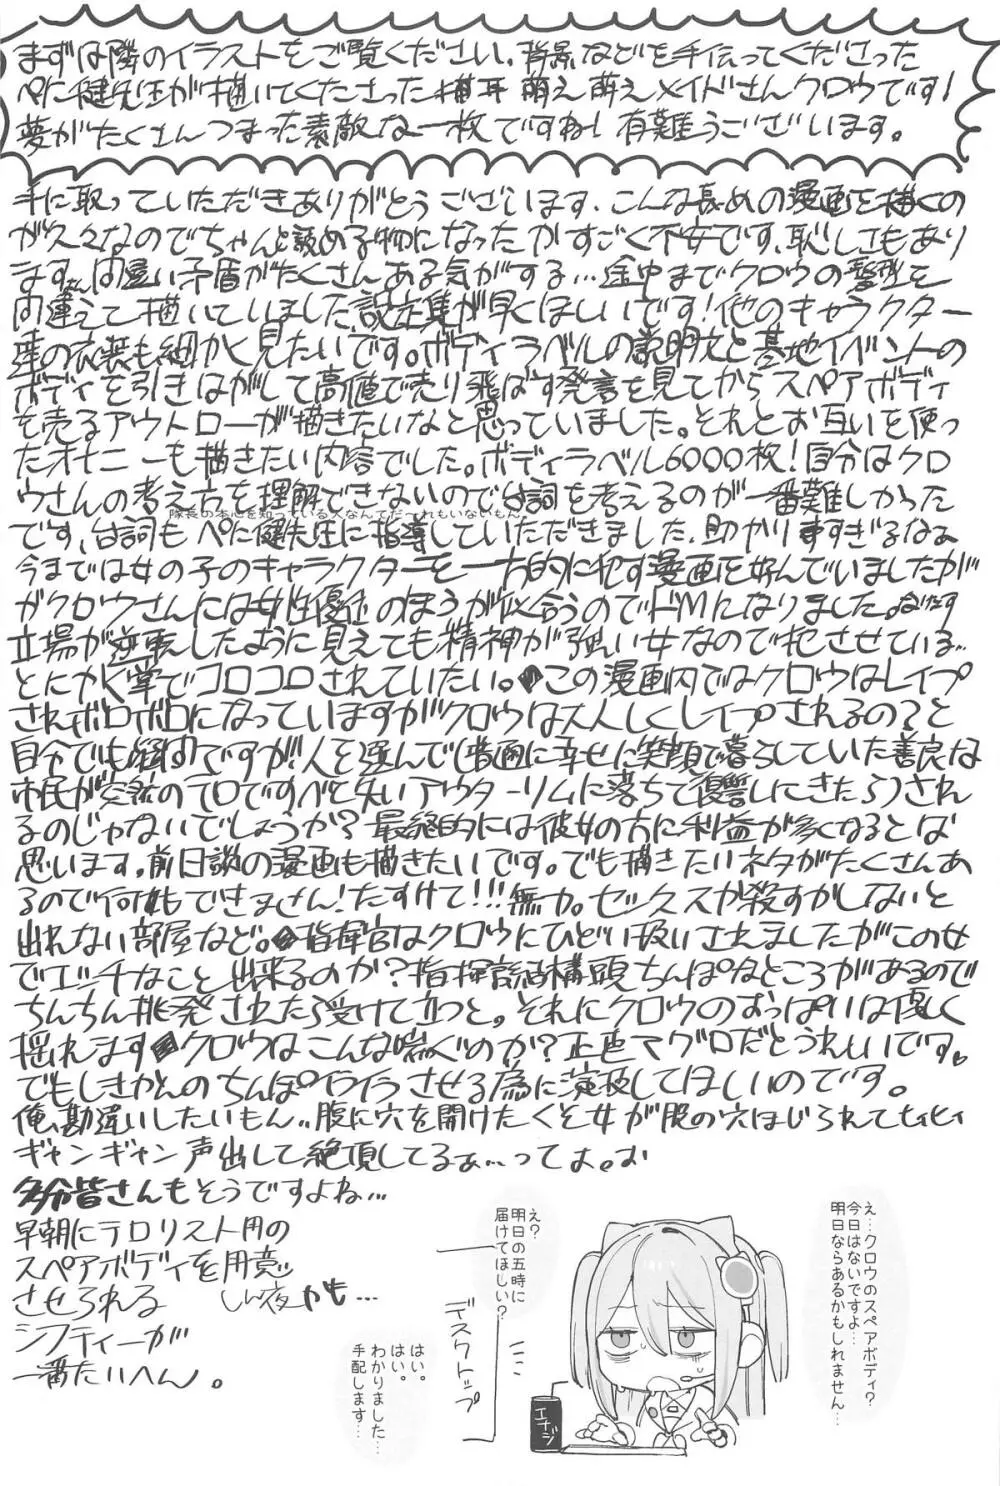 まずは隣のイラストをご覧ください。背景などを手伝ってくださった
ぺに健先生が描いてくださった猫耳萌え萌えメイドさんクロウです!
夢がたくさんつまった素敵な一枚ですね!有難うございます。
手に取っていただきありがとうございます、こんな長めの漫画を描くの
が久々なのでちゃんと読める物になったかすごく不安です、恥しさもあり
ます。間違い矛盾がたくさんある気がする…途中までクロウの髪型を
間違えて描いていました設定集が早くほしいです!他のキャラクター
達の衣装も細かく見たいです。ボディラベルの説明文と基地イベントの
ボディを引きはがして高値で売り飛ばす発言を見てからスペアボディ
を売るアウトローが描きたいなと思っていました。それとお互いを使っ
たオナニーも描きたい内容でした。ボディラベル6000枚!自分はクロ
ウさんの考え方を理解できないので台詞を考えるのが一番難しかった
隊長の本心を知っている人なんてだ〜れもいないもん。
です、台詞もぺに健先生に指導していただきました、助かりますぎるなぁ
今までは女の子のキャラクターを一方的に犯す漫画を好んでいましたが
がクロウさんには女性優位のほうが似合うのでドMになりました。
立場が逆転したように見えても精神が強い女なので犯させている…
とにかく掌でコロコロされていたい。この漫画内ではクロウはレイプ
されボロボロになっていますがクロウは大人しくレイプされるの?と
自分でも疑問ですが!人を選んで(普通に幸せに笑顔で暮らしていた善良な
市民が突然のテロですべて失いアウターリムに落ちて復讐しにきたら)され
るのじゃないでしょうか?最終的には彼女の方に利益が多くなるとは
思います。前日談の漫画も描きたいです。でも描きたいネタがたくさんあ
るので何もできません!たすけて!!!無力。セックスか殺すかしないと
出れない部屋など。指揮官はクロウにひどい扱いされましたがこの女
でエッチなこと出来るのか?指揮官結構頭ちんぽなところがあるので
ちんちん挑発されたら受けて立つと。それにクロウのおっぱいは優しく
揺れます クロウはこんな喘ぐのか?正直マグロだとうれしいです。
でもしきかんのちんぽイライラさせる為に演技してほしいのです。
俺、勘違いしたいもん‥腹に穴を開けたくそ女が股の穴ほじられてヒィヒィ
ギャンギャン声出して絶頂してるぁ…ってよ。お
多分皆さんもそうですよね…
早朝にテロリスト用の
スペアボディを用意
させられる しん夜かも…
シフティーが
一番たいへん。
え…クロウのスペアボディ?
今日はないですよ…
明日ならあるかもしれません…
え?
明日の五時に
届けてほしい?
はい。
はい。
わかりました…
手配します…
デスクトップ
エナジ